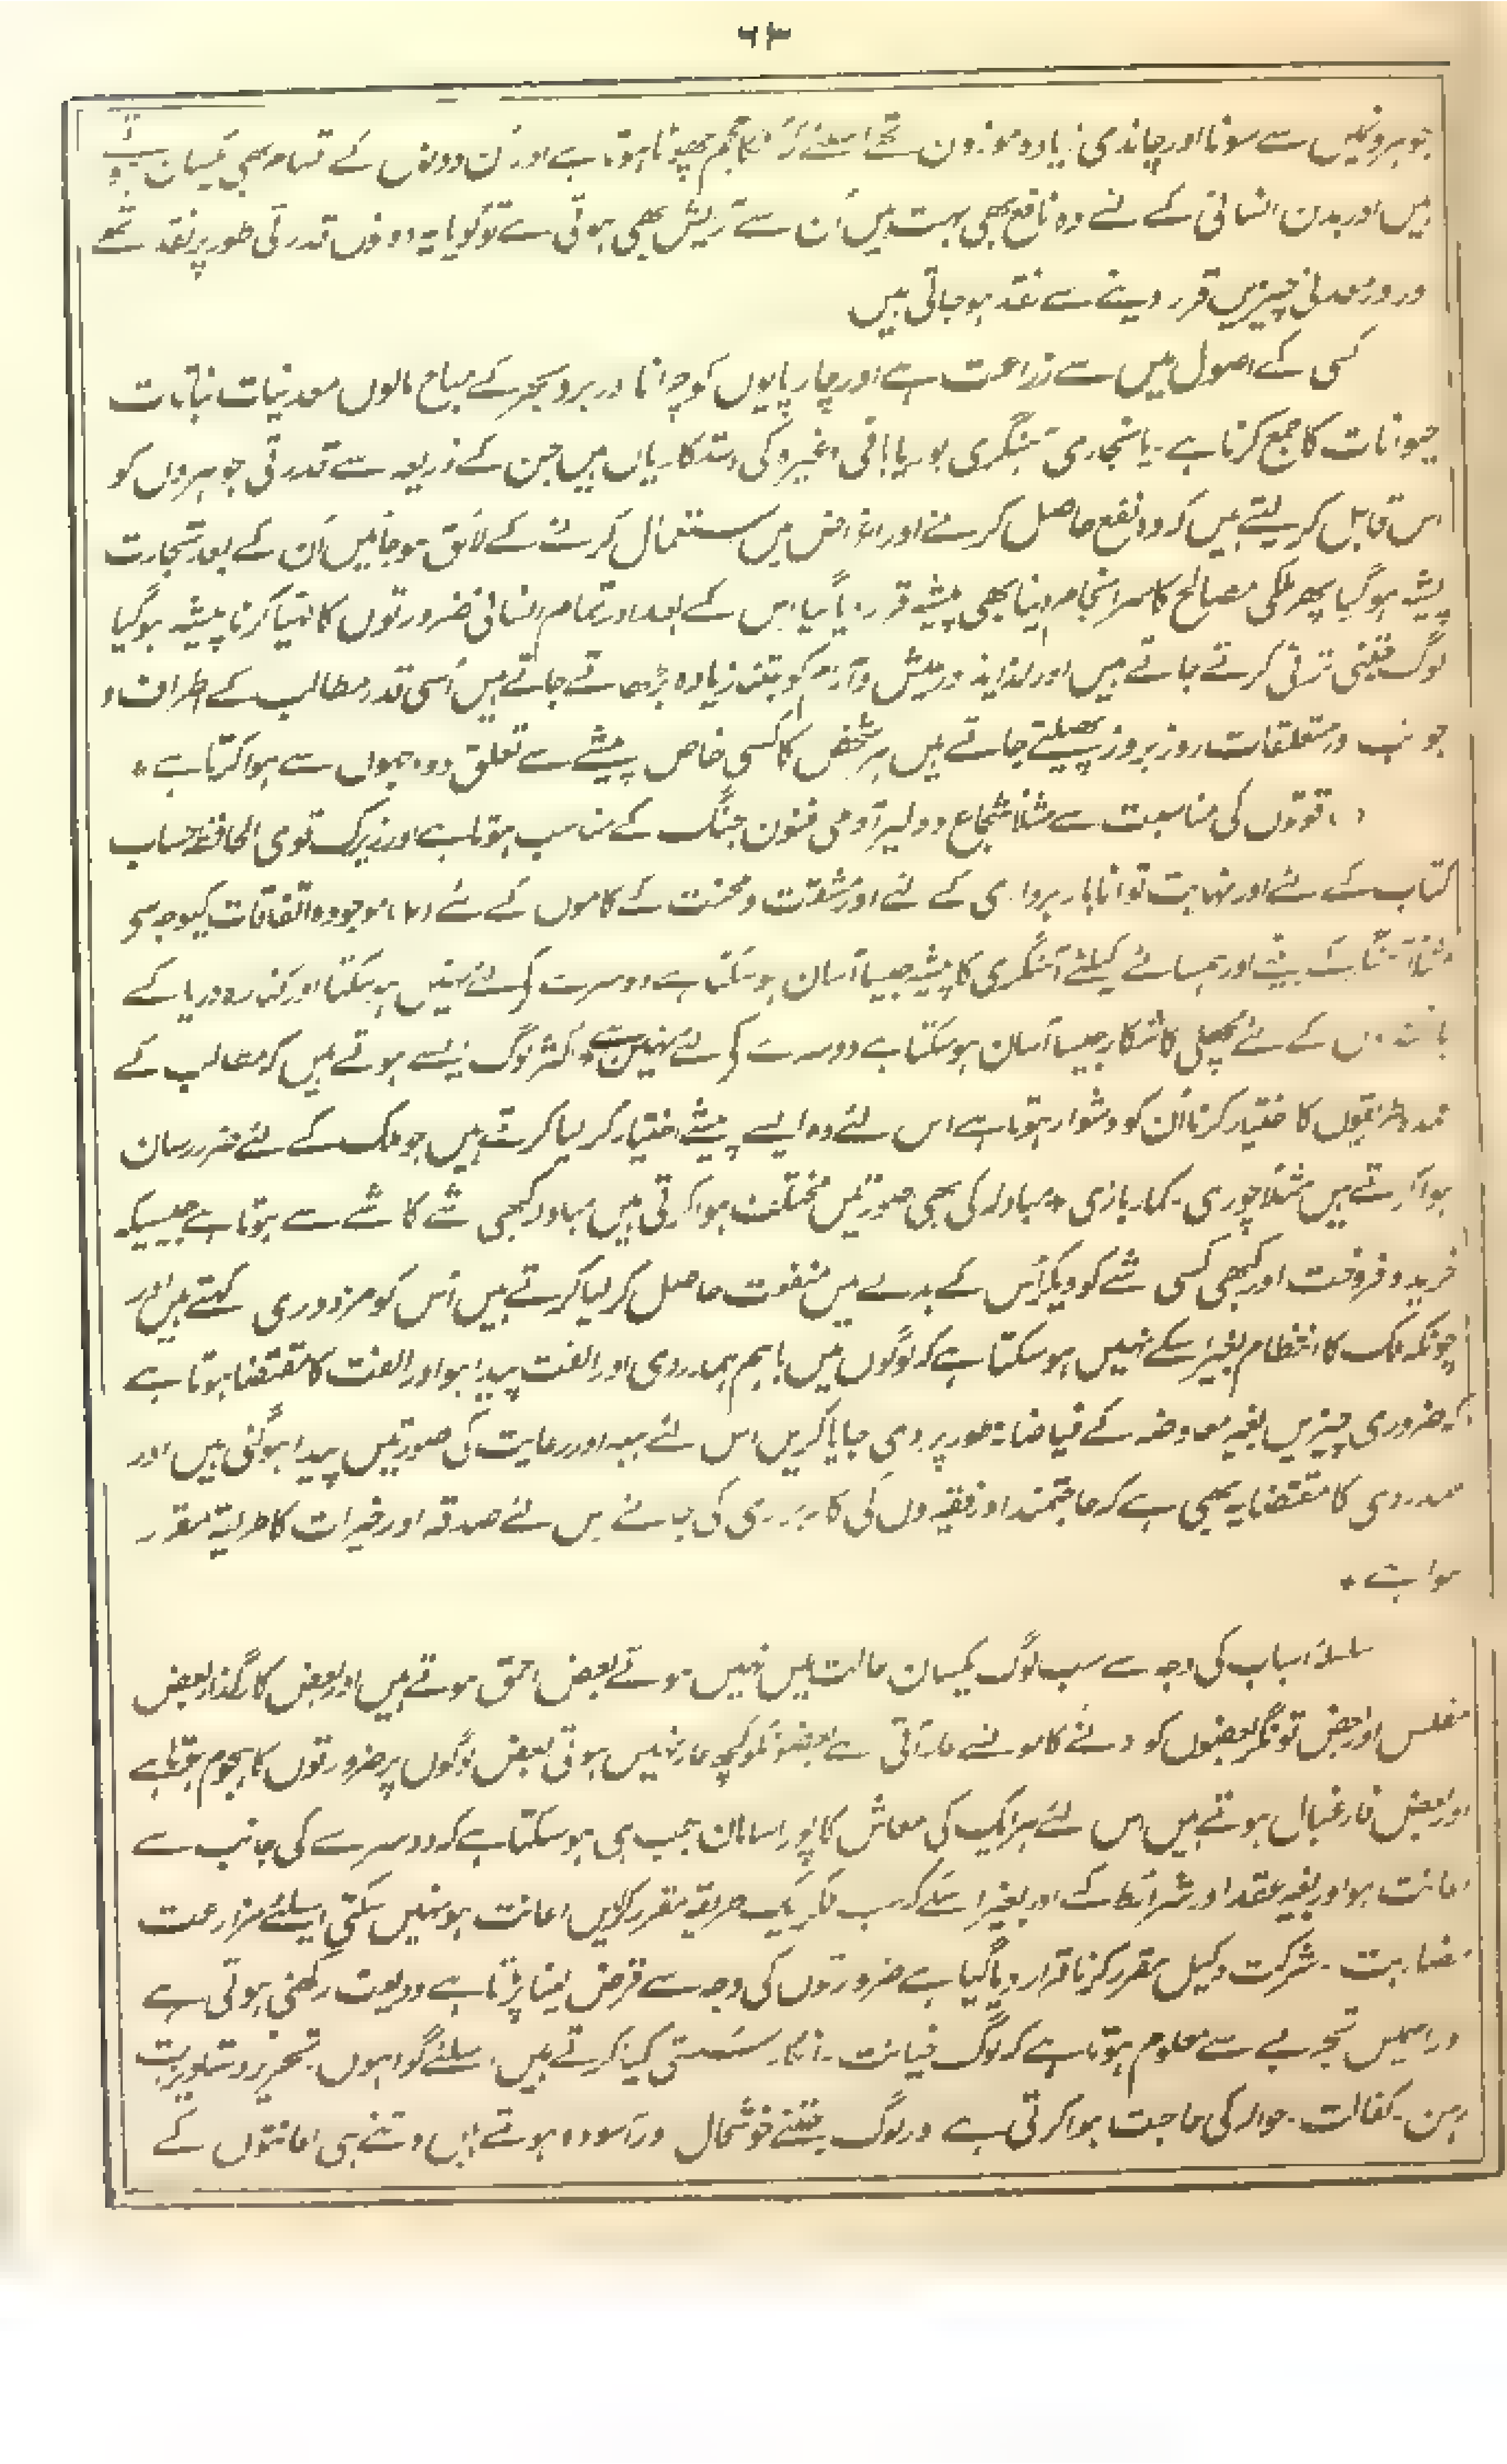 ۶۳
جوہروں میں سے سونا اور چاندی زیادہ موزون تھے اسلئے کہ انکا حجم چھوٹا ہوتا ہے اور اُن دونوں کے تمام بھی یکسان
ہیں اور بدن انسانی کے لئے وہ نافع بھی بہت ہیں اُن سے زینت بھی ہوتی ہے تو گویا یہ دونوں قدرتی طور پر نقد تھے
اور معدنی چیزیں قرار دینے سے نقد ہو جاتی ہیں
کسی کے اصول میں سے زراعت ہے اور چارپایوں کو چرانا اور بر و بحر کے مباح مالوں معدنیات نباتات
حیوانات کا جمع کرنا ہے۔ یا نجاری آہنگری بوریا بافی وغیرہ کی دستکاریاں ہیں جن کے ذریعہ سے قدرتی جوہروں کو
اس قابل کر لیتے ہیں کہ وہ نفع حاصل کرنے اور اغراض میں استعمال کرنے کے لائق ہو جائیں اُن کے بعد تجارت
پیشہ ہو گیا پھر ملکی مصالح کا سرانجام دینا بھی پیشہ قرار پا گیا اس کے بعد اور تمام انسانی ضرورتوں کا مہیا کرنا پیشہ ہو گیا
لوگ جتنی ترقی کرتے جاتے ہیں اور لذایذ اور عیش و آرام کو جتنا زیادہ بڑھاتے جاتے ہیں اُسی قدر مطالب کے اطراف و
جوانب اور متعلقات روز بروز پھیلتے جاتے ہیں ہر شخص کا کسی خاص پیشے سے تعلق دو وجہوں سے ہوا کرتا ہے *
(۱) قوتوں کی مناسبت سے مثلاً شجاع و دلیر آدمی فنون جنگ کے مناسب ہوتا ہے اور زیرک قوی الحافظہ حساب
کتاب کے لئے اور نہایت توانا بار برداری کے لئے اور مشقت و محنت کے کاموں کے لئے (۲) موجودہ اتفاقات کیوجہ سے
مثلاً آہنگر کے بیٹے اور ہمسائے کیلئے آہنگری کا پیشہ جیسا آسان ہو سکتا ہے دوسرے کے لئے نہیں ہو سکتا اور کنارہ دریا کے
باشندوں کے لئے مچھلی کا شکار جیسا آسان ہو سکتا ہے دوسرے کے لئے نہیں ہے * اکثر لوگ ایسے ہوتے ہیں کہ مطالب کے
عمدہ طریقوں کا اختیار کرنا اُن کو دشوار ہوتا ہے اس لئے وہ ایسے پیشے اختیار کر لیا کرتے ہیں جو ملک کے لئے ضرر رسان
ہوا کرتے ہیں مثلاً چوری۔ قمار بازی * مبادلہ کی بھی صورتیں مختلف ہوا کرتی ہیں مبادلہ کبھی شے کا شے سے ہوتا ہے جیسیکہ
خرید و فروخت اور کبھی کسی شے کو دیکر اُس کے بدلے میں منفعت حاصل کر لیا کرتے ہیں اُس کو مزدوری کہتے ہیں اور
چونکہ ملک کا انتظام بغیر اسکے نہیں ہو سکتا ہے کہ لوگوں میں باہم ہمدردی اور الفت پیدا ہو اور الفت کا مقتضا ہوتا ہے
کہ ضروری چیزیں بغیر معاوضہ کے فیاضانہ طور پر دی جایا کریں اس لئے ہبہ اور رعایت کی صورتیں پیدا ہو گئی ہیں اور
ہمدردی کا مقتضا یہ بھی ہے کہ حاجتمند اور فقیروں کی کاربرری کی جائے اس لئے صدقہ اور خیرات کا طریقہ مقرر
ہوا ہے *
سلسلہ اسباب کی وجہ سے سب لوگ یکسان حالت میں نہیں ہوتے بعض احمق ہوتے ہیں اور بعض کارگذار بعض
مفلس اور بعض تونگر بعضوں کو ادنے کامو نسے عار آتی ہے بعضونکو کچھ عار نہیں ہوتی بعض لوگوں پر ضرورتوں کا ہجوم ہوتا ہے
اور بعض فارغبال ہوتے ہیں اس لئے ہر ایک کی معاش کا پورا سامان جب ہی ہو سکتا ہے کہ دوسرے کی جانب سے
اعانت ہو اور بغیر عقد اور شرائط کے اور بغیر اسکے کہ سب ملکر ایک طریقہ مقرر کر لیں اعانت ہو نہیں سکتی اسلئے مزارعت
مضاربت۔ شرکت وکیل مقرر کرنا قرار دیا گیا ہے ضرورتوں کی وجہ سے قرض لینا پڑتا ہے ودیعت رکھنی ہوتی ہے
اور اسمیں تجربے سے معلوم ہوتا ہے کہ لوگ خیانت۔ انکار۔ سستی کیا کرتے ہیں، اسلئے گواہوں۔ تحریر دستاویزات
رہن۔ کفالت۔ حوالہ کی حاجت ہوا کرتی ہے اور لوگ جتنے خوشحال اور آسودہ ہوتے ہیں اوتنے ہی اعانتوں کے